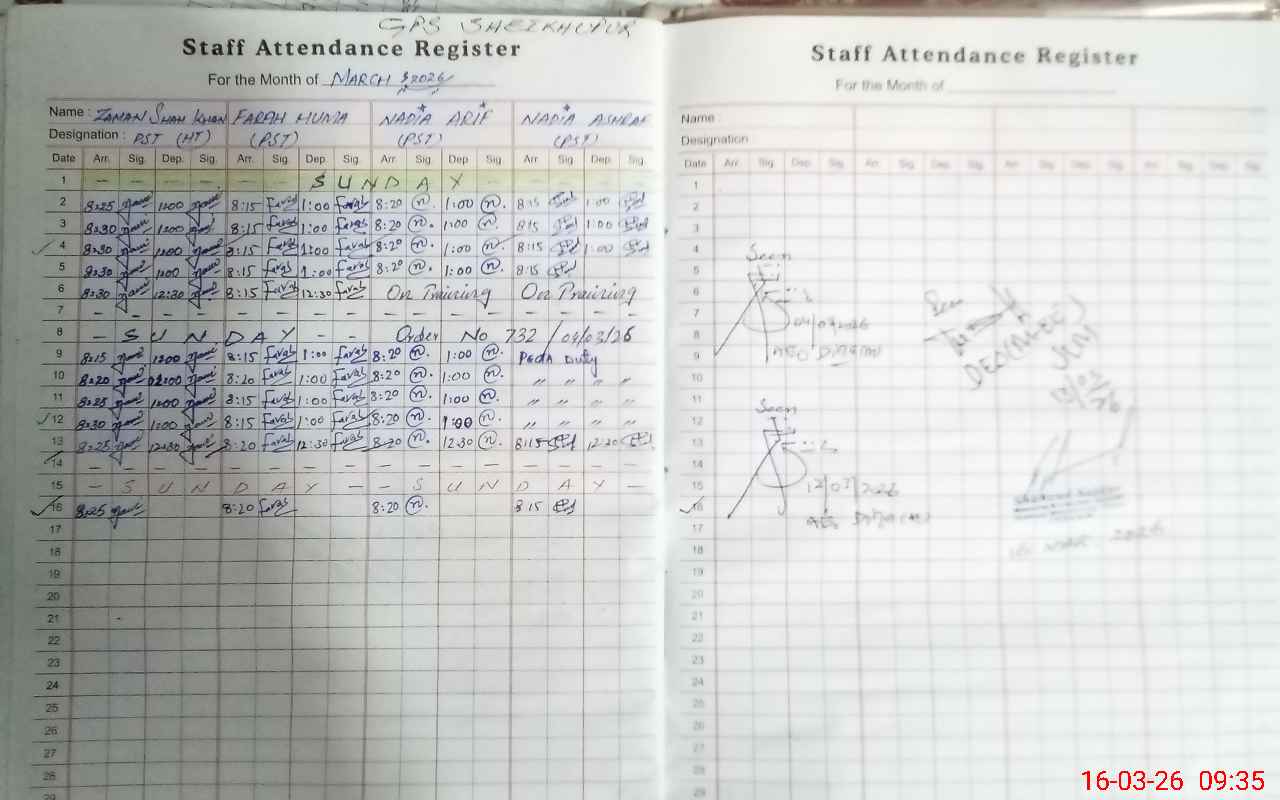 GPS SHEIKHUPUR
Staff Attendance Register
For the Month of MARCH 2026
Name : ZAMAN SHAH KHAN FARAH HUMA NADIA ARIF NADIA ASHRAF
Designation : PST (HT) (PST) (PST) (PST)
Date Arr. Sig. Dep. Sig. Arr. Sig. Dep. Sig. Arr. Sig. Dep Sig Arr. Sig. Dep. Sig.
1 — — — S U N D A Y — — —
2 8:25 1:00 8:15 Farah 1:00 Farah 8:20 n. 1:00 n. 8:15 1:00
3 8:30 1:00 8:15 Farah 1:00 Farah 8:20 n. 1:00 n. 8:15 1:00
4 8:30 1:00 8:15 Farah 1:00 Farah 8:20 n. 1:00 n. 8:15 1:00
5 8:30 1:00 8:15 Farah 1:00 Farah 8:20 n. 1:00 n. 8:15
6 8:30 12:30 8:15 Farah 12:30 Farah On Training On Training
7 — — — — — — — — — — — — — — — —
8 — S U N D A Y — — Order No 732 / 04/03/26
9 8:15 1:00 8:15 Farah 1:00 Farah 8:20 n. 1:00 n. Duty
10 8:20 1:00 8:20 Farah 1:00 Farah 8:20 n. 1:00 n. " " " "
11 8:25 1:00 8:15 Farah 1:00 Farah 8:20 n. 1:00 n. " " " "
12 8:30 1:00 8:15 Farah 1:00 Farah 8:20 n. 1:00 n. " " " "
13 8:25 12:30 8:20 Farah 12:30 Farah 8:20 n. 12:30 n. 8:15 12:20
14 — — — — — — — — — — — — — — — —
15 — S U N D A Y — — S U N D A Y —
16 8:25 8:20 Farah 8:20 n. 8:15
17
18
19
20
21
22
23
24
25
26
27
28
29
Staff Attendance Register
For the Month of
Name :
Designation
Date Arr. Sig. Dep. Sig. Arr. Sig. Dep. Sig. Arr. Sig. Dep. Sig. Arr. Sig. Dep. Sig.
1
2
3
4
Seen
5
6
7
04/03/2026
8
9
10
11
12
Seen
13
14
15
12/03/2026
16
17
18
16 MAR 2026
19
20
21
22
23
24
25
26
27
28
29
16-03-26 09:35